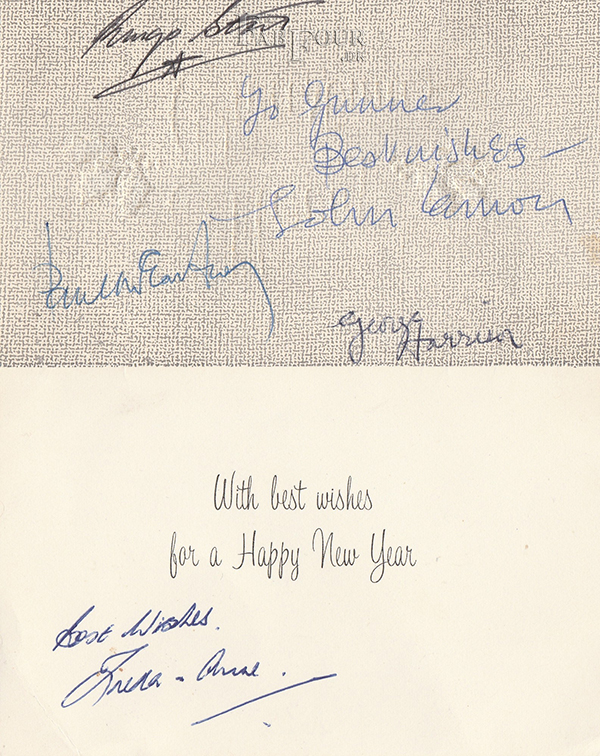 Ringo Starr
TOUR
To Gunner
Best wishes
John Lennon
Paul McCartney
George Harrison
With best wishes
for a Happy New Year
Best Wishes.
Freda - Anne.